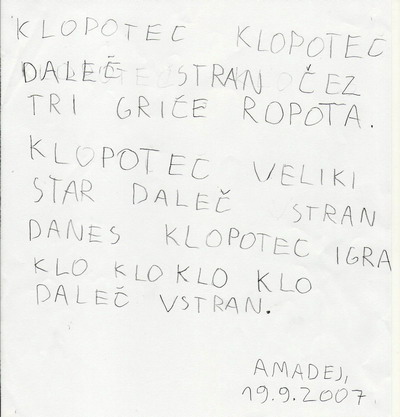 KLOPOTEC KLOPOTEC
DALEČ STRAN ČEZ
TRI GRIČE ROPOTA.
KLOPOTEC VELIKI
STAR DALEČ STRAN
DANES KLOPOTEC IGRA
KLO KLO KLO KLO
DALEČ VSTRAN.
AMADEJ,
19.9.2007